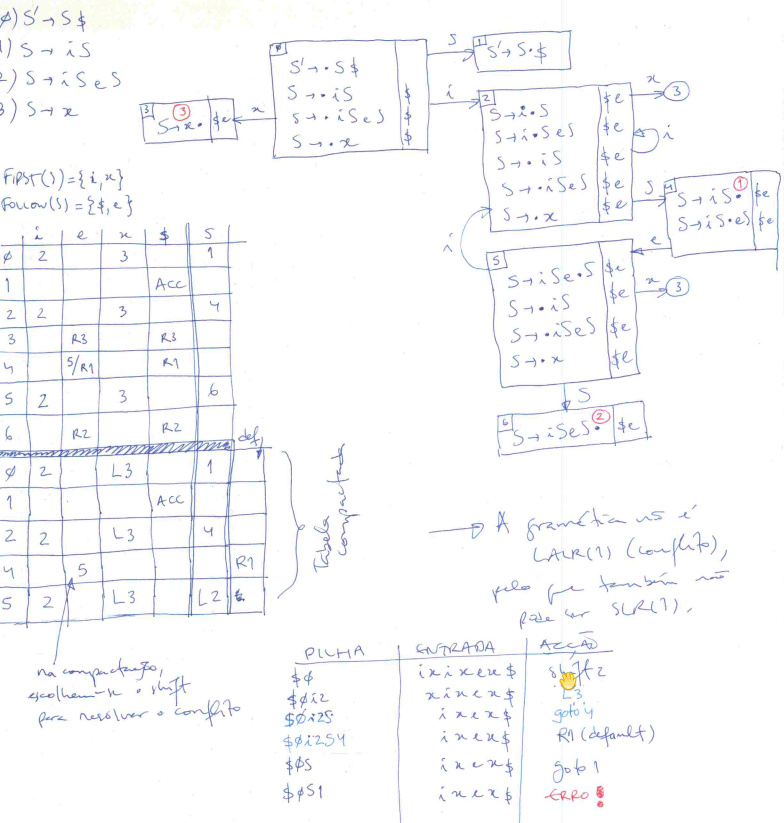 ∅) S' → S $
1) S → i S
2) S → i S e S
3) S → x
FIRST(S) = {i, x}
FOLLOW(S) = {$, e}
∅
S' → • S $
S → • i S $
S → • i S e S $
S → • x $
S
1
S' → S • $
x
3
3
S → x • $e
i
2
S → i • S $e
S → i • S e S $e
S → • i S $e
S → • i S e S $e
S → • x $e
x
3
i
S
4
1
S → i S • $e
S → i S • e S $e
e
i
5
S → i S e • S $e
S → • i S $e
S → • i S e S $e
S → • x $e
x
3
S
6
2
S → i S e S • $e
i e x $ S
∅ 2 3 1
1 ACC
2 2 3 4
3 R3 R3
4 5/R1 R1
5 2 3 6
6 R2 R2
def.
∅ 2 L3 1
1 ACC
2 2 L3 4
4 5 R1
5 2 L3 L2
Tabela
compactada
na compactação,
escolhem-se o shift
para resolver o conflito
→ A gramática não é
LALR(1) (conflito),
pelo que também não
pode ser SLR(1).
PILHA ENTRADA ACÇÃO
$∅ i x i x e x $ shift 2
$∅i2 x i x e x $ L3
$∅i2S i x e x $ goto 4
$∅i2S4 i x e x $ R1 (default)
$∅S i x e x $ goto 1
$∅S1 i x e x $ ERRO!